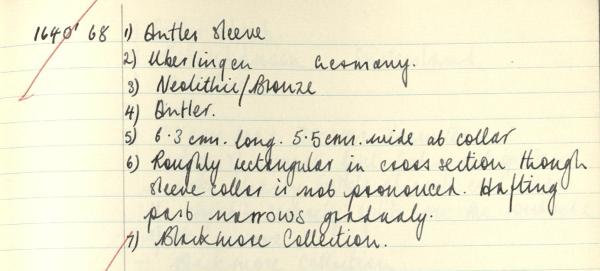 1640' 68 1) Antler sleeve
2) Uberlingen Germany.
3) Neolithic/Bronze
4) Antler.
5) 6.3 cms. long. 5.5 cms. wide at collar
6) Roughly rectangular in cross section though
sleeve collar is not pronounced. Hafting
part narrows gradualy.
7) Blackmore Collection.